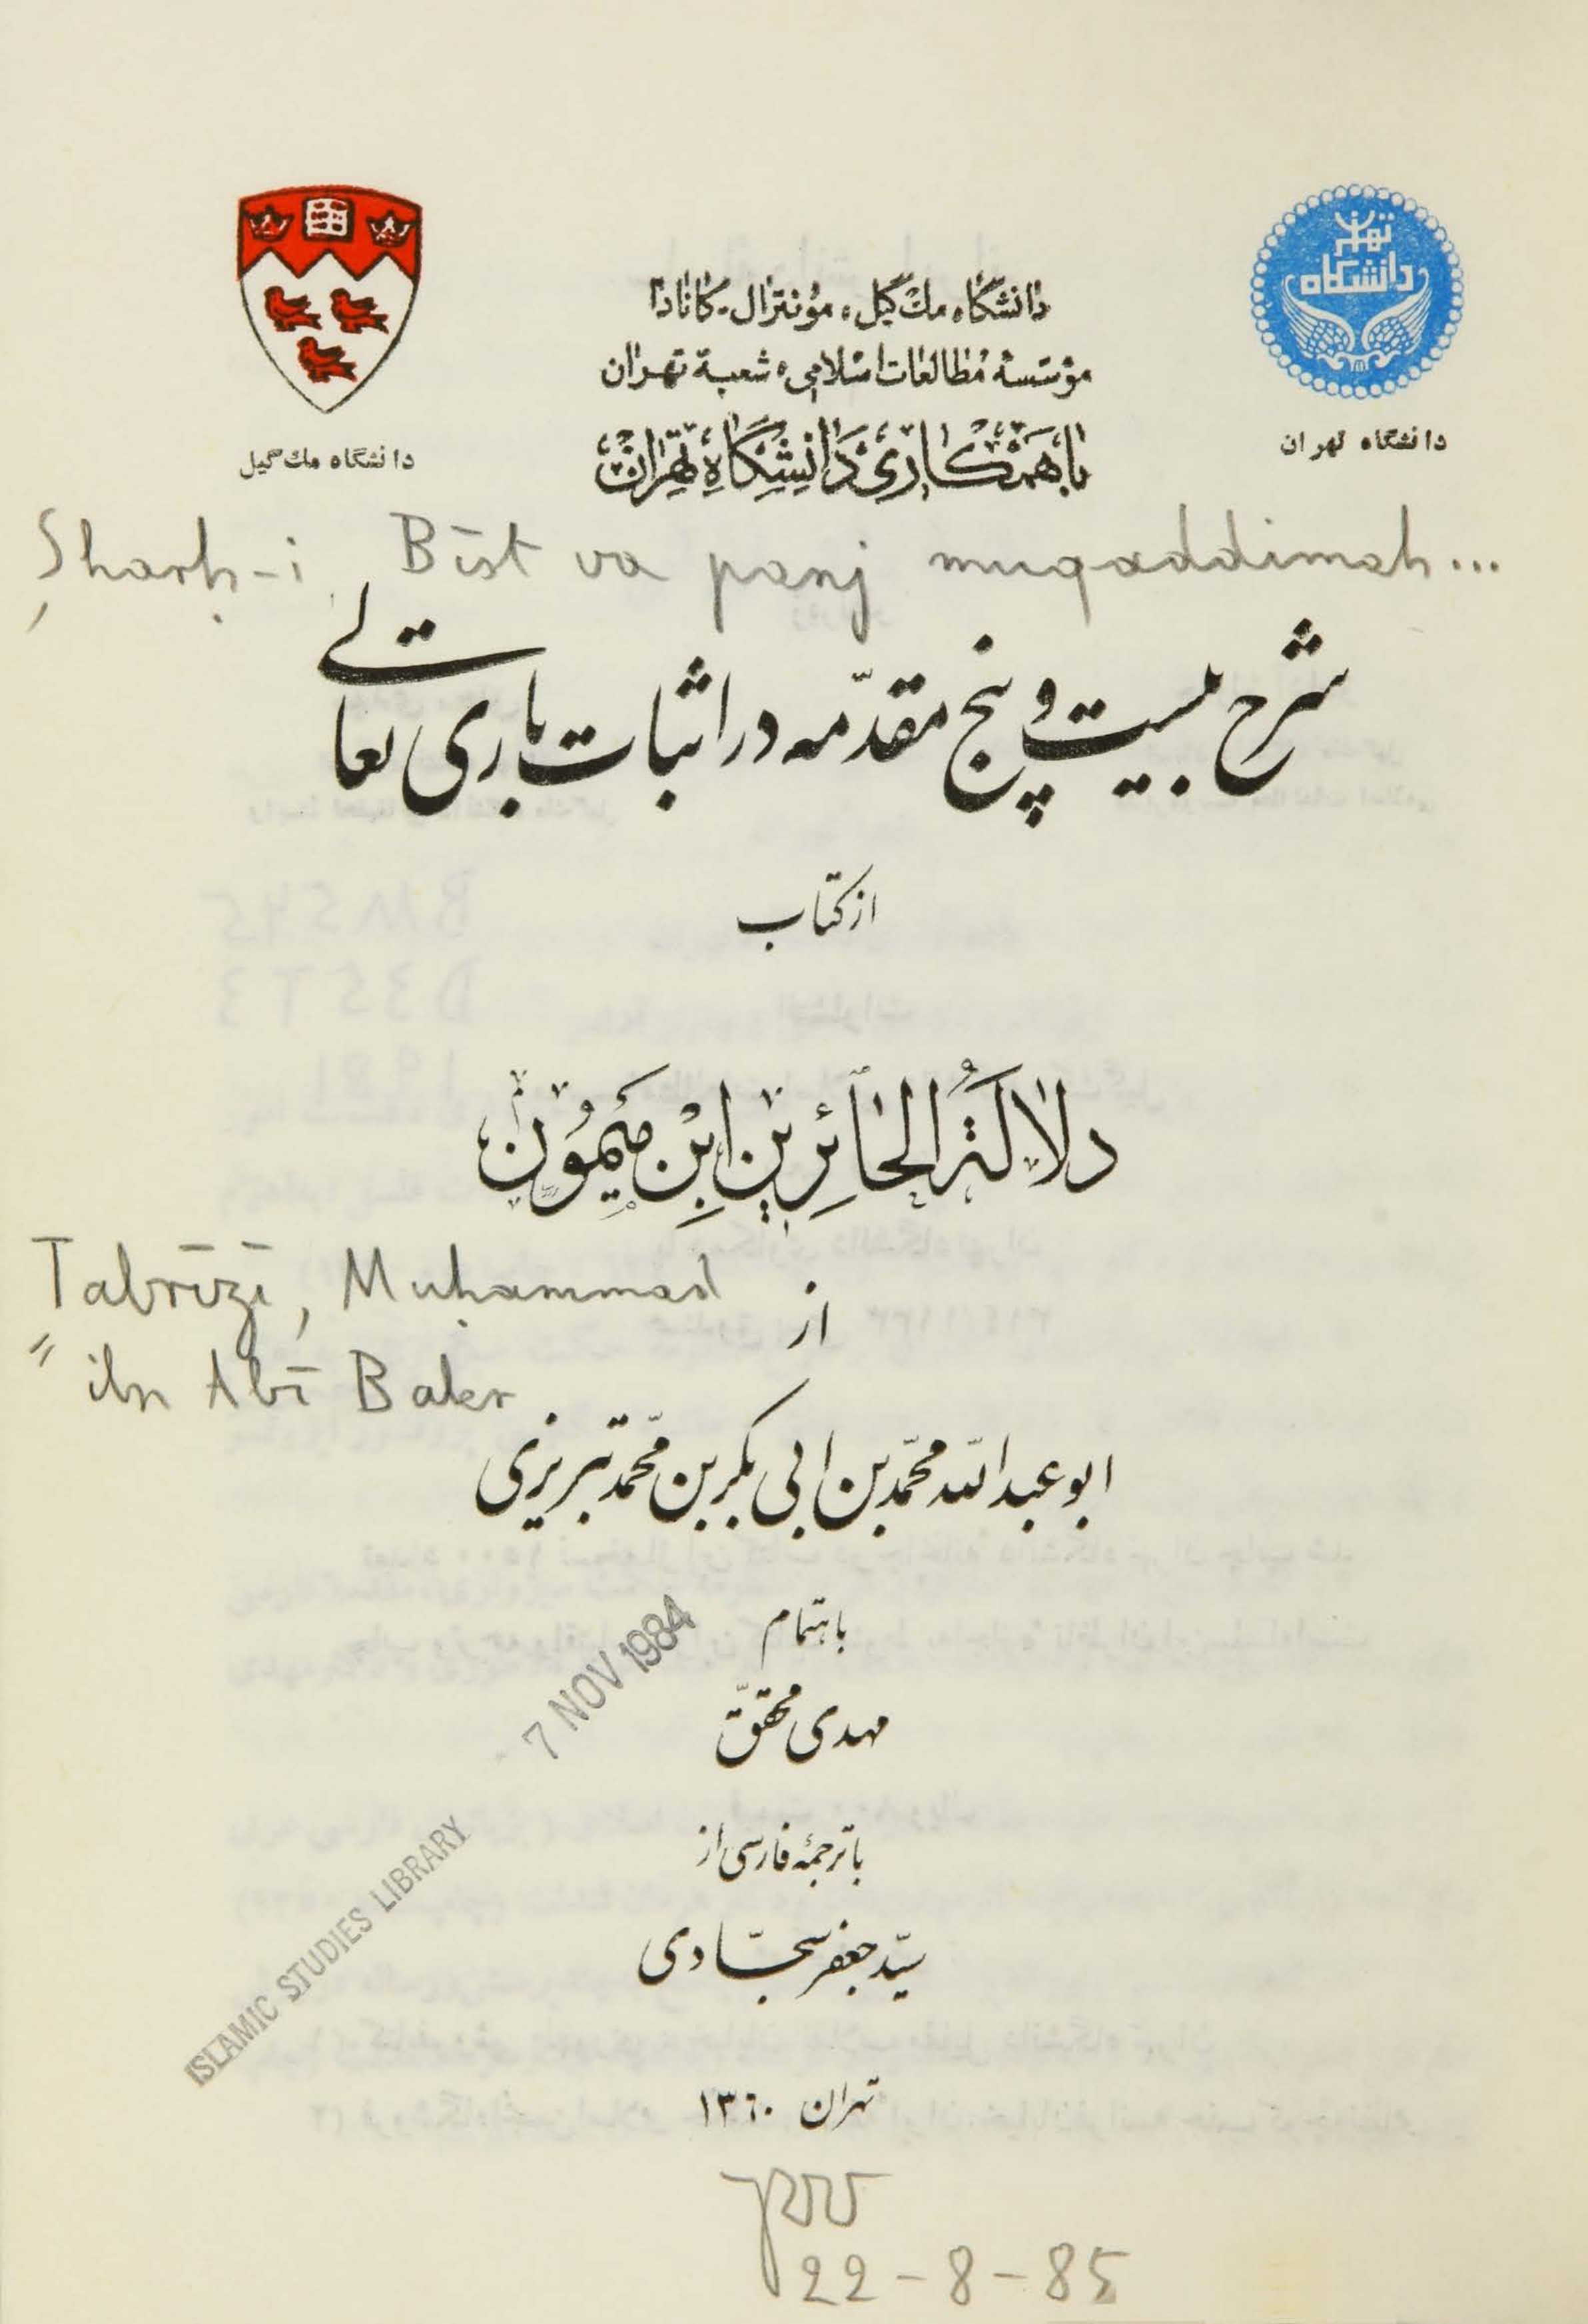 تهران
دانشگاه
دانشگاه تهران
دانشگاه مك‌گيل
دانشگاه مك‌گيل، مونترال-كانادا
مؤسسهٔ مطالعات اسلامی، شعبهٔ تهران
با همكاری دانشگاه تهران
Sharḥ-i Bīst va panj muqaddimah...
شرح بيست و پنج مقدّمه در اثبات باری تعالی
از كتاب
دلالةُ الحائِرين ابنِ ميمون
Tabrīzī, Muḥammad
از
ibn Abī Bakr
ابو عبدالله محمّد بن ابی بكر بن محمّد تبريزی
باهتمام
7 NOV 1984
مهدی محقّق
با ترجمهٔ فارسی از
سيّد جعفر سجّادی
ISLAMIC STUDIES LIBRARY
تهران ۱۳۶۰
22-8-85